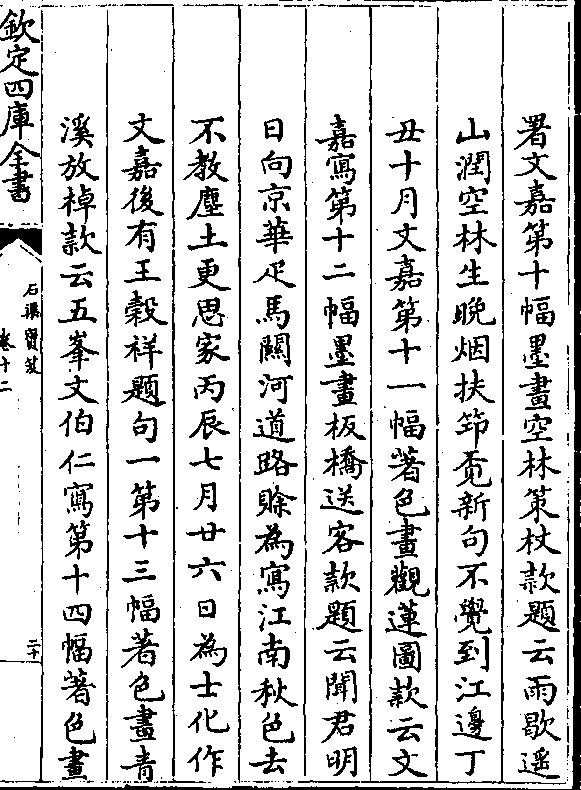 署文嘉第十幅墨畫空林策杖款題云雨歇遥
山潤空林生晚烟扶筇覔新句不覺到江邊丁
丑十月文嘉第十一幅著色畫觀蓮圖款云文
嘉寫第十二幅墨畫板橋送客款題云聞君明
日向京華疋馬闗河道路賒為寫江南秋色去
不教塵土更思家丙辰七月廿六日為士化作
文嘉後有王穀祥題句一第十三幅著色畫青
溪放棹款云五峯文伯仁寫第十四幅著色畫
欽定四庫全書
石渠寳笈
卷十二
二十